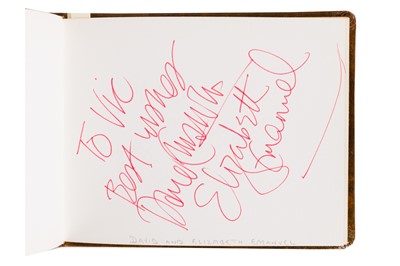 To Vic
Best wishes
David Emanuel
Elizabeth
Emanuel
DAVID AND ELIZABETH EMANUEL